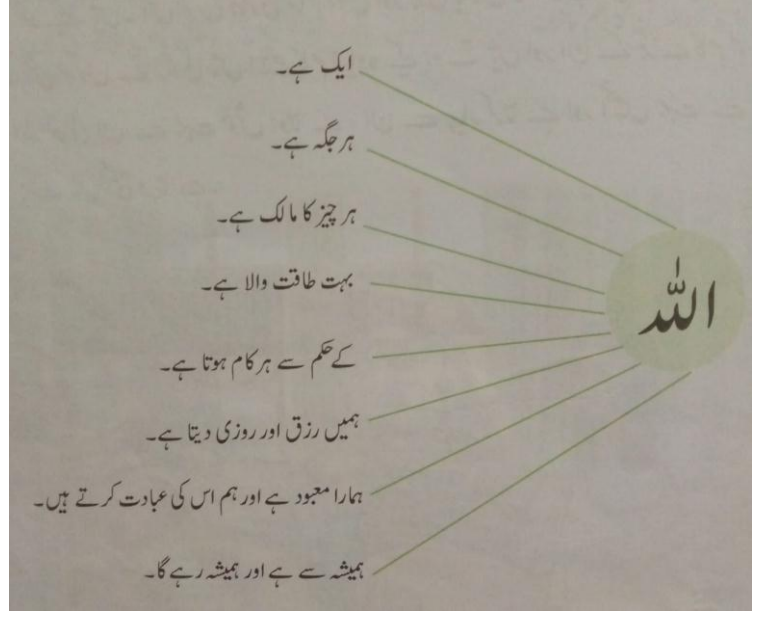 اللہ
ایک ہے۔
ہر جگہ ہے۔
ہر چیز کا مالک ہے۔
بہت طاقت والا ہے۔
کے حکم سے ہر کام ہوتا ہے۔
ہمیں رزق اور روزی دیتا ہے۔
ہمارا معبود ہے اور ہم اس کی عبادت کرتے ہیں۔
ہمیشہ سے ہے اور ہمیشہ رہے گا۔